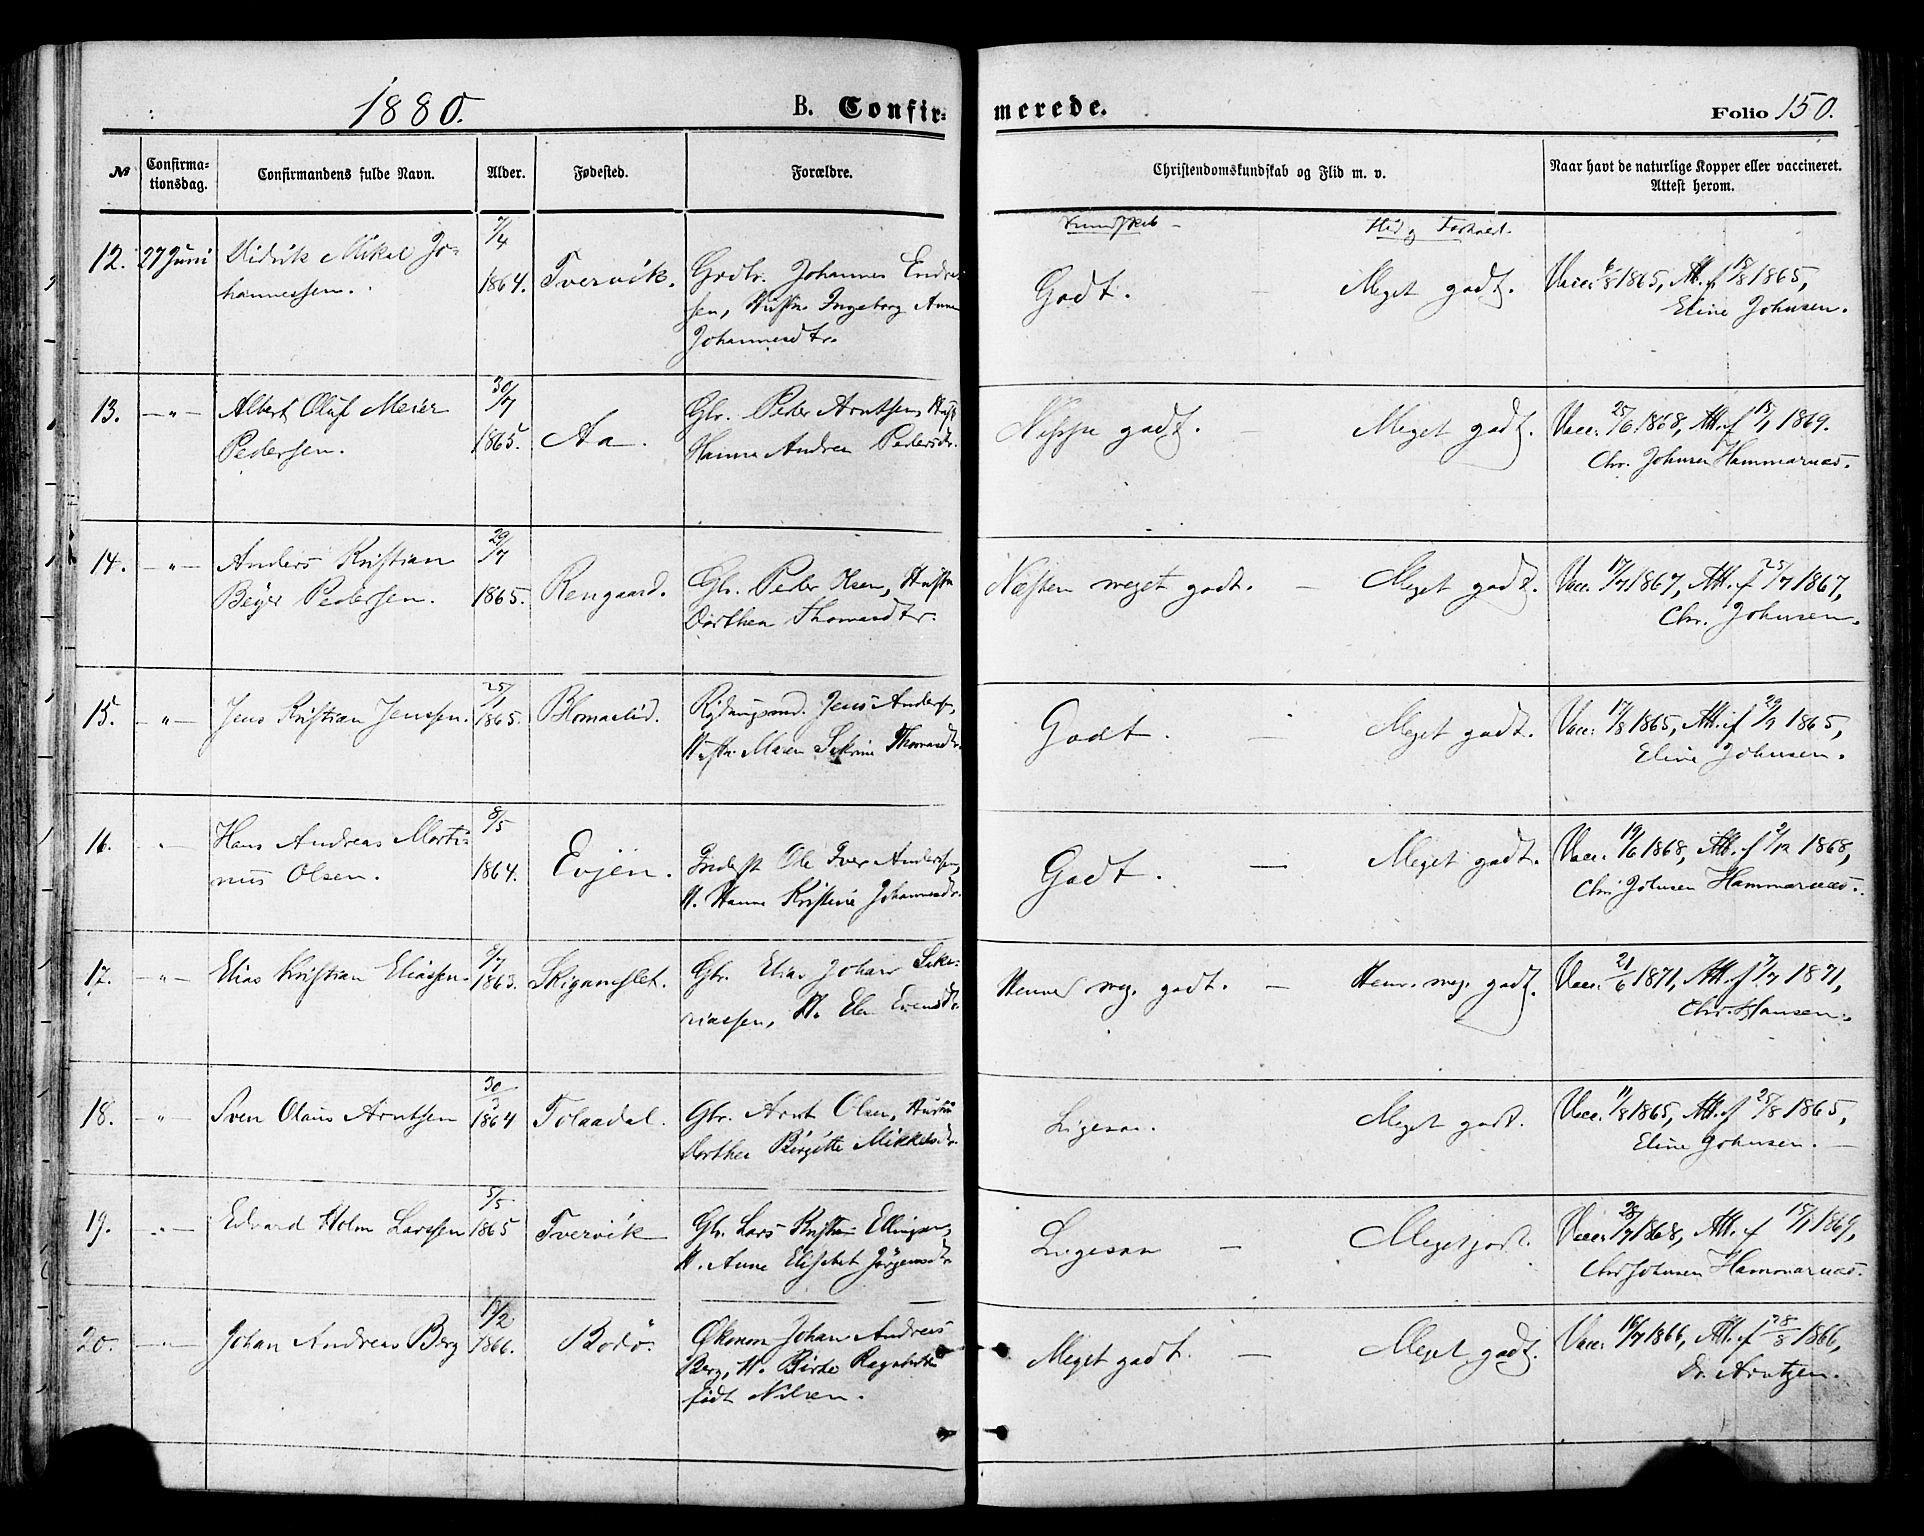 1880.
B. Confir-
merede.
Folio 150.
№
Confirma-
tionsdag.
Confirmandens fulde Navn.
Alder.
Fødested.
Forældre.
Christendomskundskab og Flid m. v.
Naar havt de naturlige Kopper eller vaccineret.
Attest herom.
Kundskab - Flid og Forhold.
12. 27 Juni Didrik Mikal Jo-
hannessen.
7/4
1864. Tvervik.
Grdbr. Johannes
sen, Hustru Ingeborg Anna
Johannesdtr.
Godt. — Meget godt.
Vacc. 6/8 1865, Att. f 18/8 1865,
Eline Johnsen.
13. —"— Albert Oluf Meier
Pedersen.
30/7
1865. Aa.
Gbr. Peder Arntsen, Hust.
Hanna Andrea Pedersdtr.
Neppe godt. — Meget godt.
Vacc. 25/6 1868, Att. f 15/1 1869.
Chr. Johnsen Hammarnæs.
14. —"— Anders Kristian
Beyer Pedersen.
29/7
1865. Rengaard.
Gbr. Peder Olsen, Hustru
Dorthea Thomasdtr.
Næsten meget godt. — Meget godt.
Vacc. 17/7 1867, Att. f 25/7 1867,
Chr. Johnsen.
15. —"— Jens Kristian Jenssen.
25/1
1865. Blomaslid.
Rydningsmd. Jens Andersen,
Hustr. Maren Thomasdtr.
Godt. — Meget godt.
Vacc. 17/8 1865, Att. f 29/9 1865,
Eline Johnsen.
16. —"— Hans Andreas Marti-
nus Olsen.
8/5
1864. Evjen.
Inderst Ole Iver Anderssen,
H. Hanna Kristine Johannesdtr.
Godt. — Meget godt.
Vacc. 19/6 1868, Att. f 2/12 1868,
Chr. Johnsen Hammarnæs.
17. —"— Elias Kristian Eliassen.
1863. Skijamslet.
Gbr. Elias Johan Seke-
riassen, H. Elen Evensdtr.
Henved meg. godt. — Henv. meg. godt.
Vacc. 21/6 1871, Att. f 7/7 1871,
Chr. Hansen.
18. —"— Sven Olaus Arntsen
30/3
1864 Tolaadal.
Gbr. Arnt Olsen, Hustru
Dorthea Birgitte Mikkelsdtr.
Ligesaa. Meget godt.
Vacc. 11/8 1865, Att. f 25/8 1865,
Eline Johnsen. —
19. —"— Edvard Holm Larssen
5/5
1865 Tvervik
Gbr. Lars Kristian Ellingsen,
H. Anne Elisabet Jørgensdtr.
Ligesaa — Meget godt.
Vacc. 28/7 1868, Att. f 15/1 1869,
Chr Johnsen Hammarnæs.
20. —"— Johan Andreas Berg
19/2
1866. Bodø.
Økonom Johan Andreas
Berg, H. Birte Ragnhild
født Nilsen.
Meget godt. — Meget godt.
Vacc. 16/7 1866, Att. f 28/8 1866,
Dr. Arntzen.